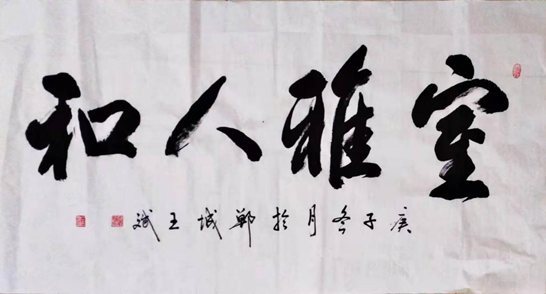 室雅人和
庚子冬月於鄲城王斌